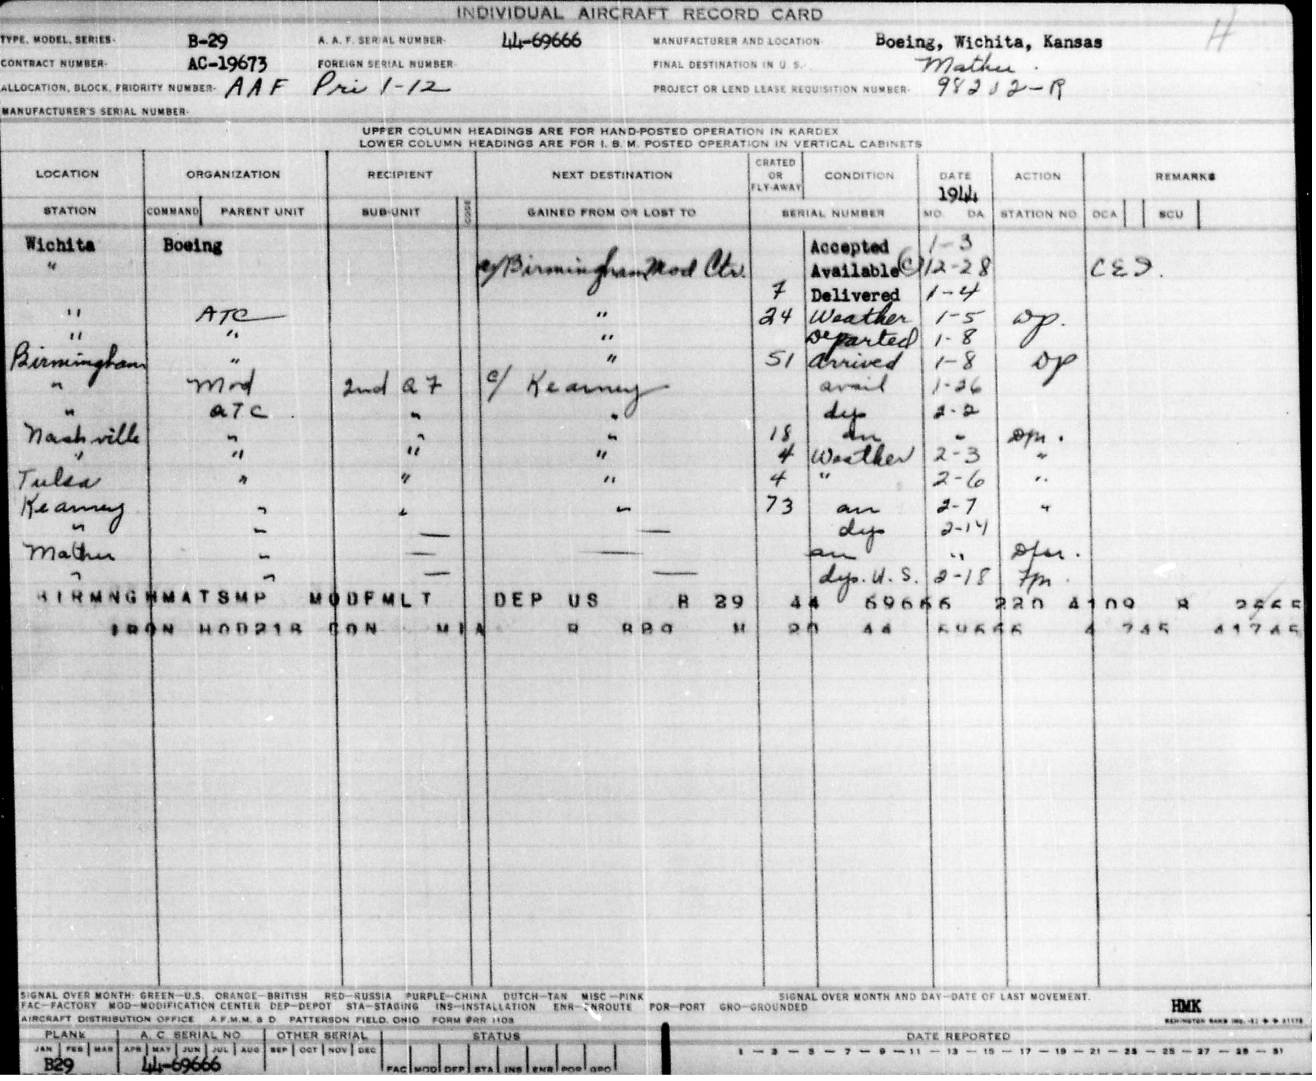 INDIVIDUAL AIRCRAFT RECORD CARD
H
TYPE, MODEL, SERIES- B-29 A. A. F. SERIAL NUMBER- 44-69666 MANUFACTURER AND LOCATION- Boeing, Wichita, Kansas
CONTRACT NUMBER- AC-19673 FOREIGN SERIAL NUMBER- FINAL DESTINATION IN U. S.- Mather
ALLOCATION, BLOCK, PRIORITY NUMBER- AAF Pri 1-12 PROJECT OR LEND LEASE REQUISITION NUMBER- 98212-R
MANUFACTURER'S SERIAL NUMBER-
UPPER COLUMN HEADINGS ARE FOR HAND-POSTED OPERATION IN KARDEX
LOWER COLUMN HEADINGS ARE FOR I. B. M. POSTED OPERATION IN VERTICAL CABINETS
LOCATION ORGANIZATION RECIPIENT NEXT DESTINATION CRATED OR FLY-AWAY CONDITION DATE 1944 ACTION REMARKS
STATION COMMAND PARENT UNIT SUB-UNIT CODE GAINED FROM OR LOST TO SERIAL NUMBER MO. DA. STATION NO. DCA SCU
Wichita Boeing Accepted 1-3
" Birmingham Mod Ctr. Available (C) 12-28
7 Delivered 1-4
" ATC " 24 Weather 1-5
" " " Departed 1-8
Birmingham " " 51 Arrived 1-8
" Mod 2nd AF c/ Kearney avail 1-26
" ATC " " dep 2-2
Nashville " " " 18 arr "
" " " " 4 Weather 2-3 "
Tulsa " " " 4 " 2-6 "
Kearney " " " 73 arr 2-7 "
" " — — dep 2-14
Mather " — — arr "
" " — — dep. U.S. 2-18
BIRMNGHMMATSMP MODFMLT DEP US R 29 44 69666 220 4109 R
44 69666
SIGNAL OVER MONTH: GREEN—U.S. ORANGE—BRITISH RED—RUSSIA PURPLE—CHINA DUTCH—TAN MISC—PINK SIGNAL OVER MONTH AND DAY—DATE OF LAST MOVEMENT.
FAC—FACTORY MOD—MODIFICATION CENTER DEP—DEPOT STA—STAGING INS—INSTALLATION ENR—ENROUTE POR—PORT GRO—GROUNDED
HMK
AIRCRAFT DISTRIBUTION OFFICE A.F.M.M. & D PATTERSON FIELD, OHIO
PLANE A. C. SERIAL NO OTHER SERIAL STATUS DATE REPORTED
JAN FEB MAR APR MAY JUN JUL AUG SEP OCT NOV DEC 1 — 3 — 5 — 7 — 9 — 11 — 13 — 15 — 17 — 19 — 21 — 23 — 25 — 27 — 29 — 31
B29 44-69666 FAC MOD DEP STA INS ENR POR GRO